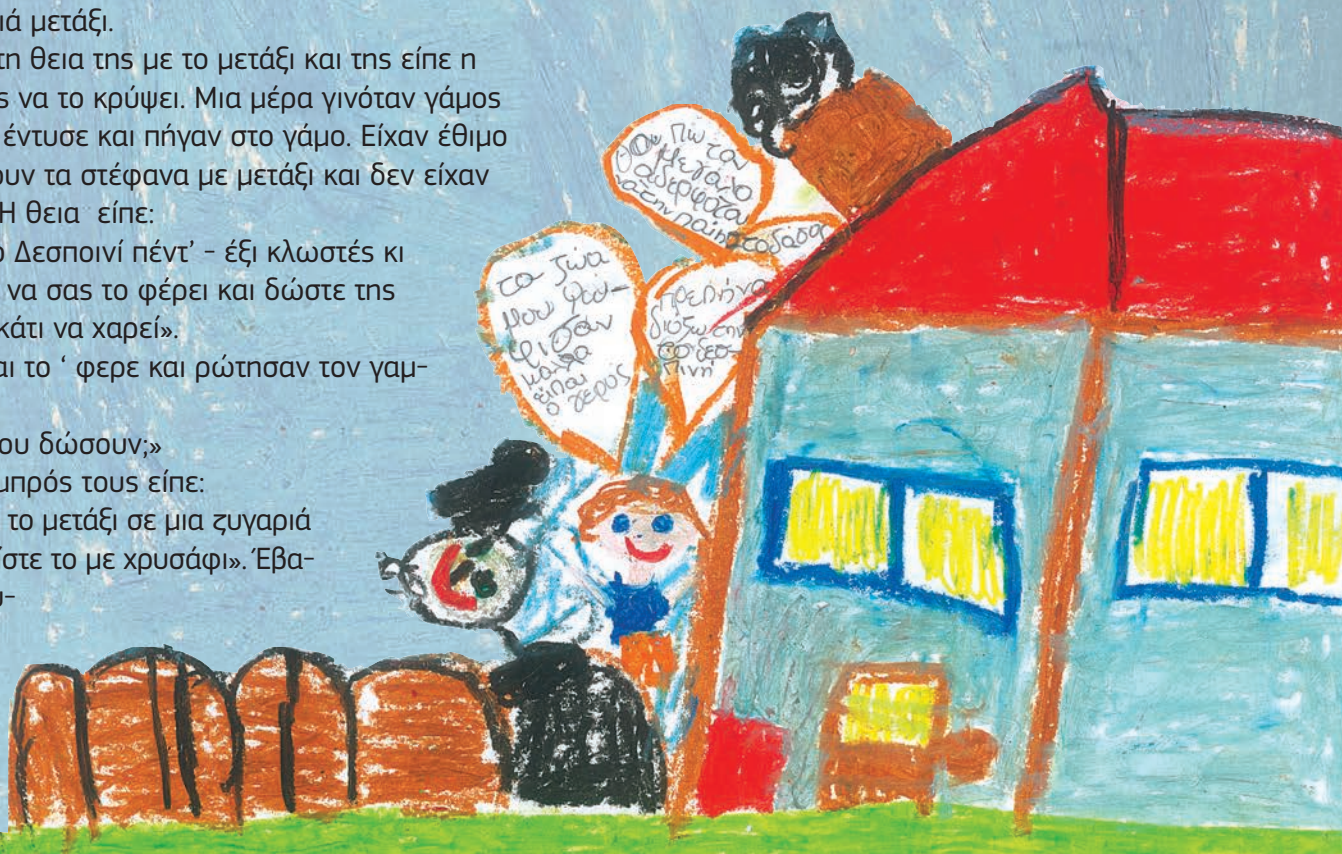 ιά μετάξι.
τη θεια της με το μετάξι και της είπε η
ς να το κρύψει. Μια μέρα γινόταν γάμος
έντυσε και πήγαν στο γάμο. Είχαν έθιμο
ουν τα στέφανα με μετάξι και δεν είχαν
Η θεια είπε:
ο Δεσποινί πέντ' - έξι κλωστές κι
να σας το φέρει και δώστε της
κάτι να χαρεί».
αι το ‘ φερε και ρώτησαν τον γαμ-
ου δώσουν;»
μπρός τους είπε:
το μετάξι σε μια ζυγαριά
ίστε το με χρυσάφι». Έβα-
υ-
Θα πιω τον
μεγάλο
αδερφό
τα ζώα
μου ψώ-
φισαν
είπαι
ο γερος
πρεπή να
διόξω την